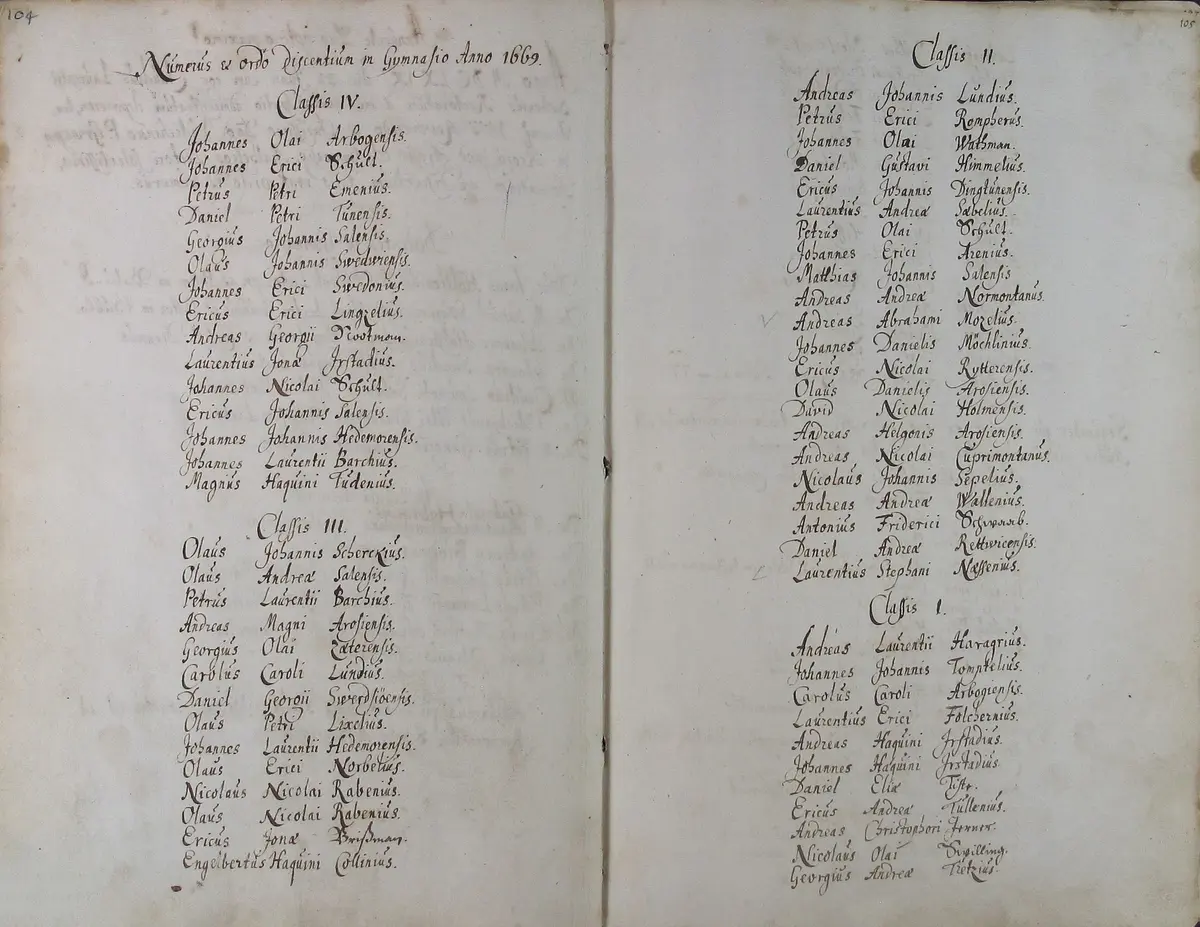 104
Numerus et ordo discentium in Gymnasio Anno 1669.
Classis IV.
Johannes Olai Arbogensis.
Johannes Erici Schult.
Petrus Petri Emenius.
Daniel Petri Tunensis.
Georgius Johannis Salensis.
Olaus Johannis Swedwiensis.
Johannes Erici Swedonius.
Ericus Erici Lingzelius.
Andreas Georgii Nootman.
Laurentius Jonæ Irstadius.
Johannes Nicolai Schult.
Ericus Johannis Salensis.
Johannes Johannis Hedemorensis.
Johannes Laurentii Barchius.
Magnus Haquini Tudenius.
Classis III.
Olaus Johannis Scherckius.
Olaus Andreæ Salensis.
Petrus Laurentii Barchius.
Andreas Magni Arosiensis.
Georgius Olai Zæterensis.
Carolus Caroli Lundius.
Daniel Georgii Swerdsiöensis.
Olaus Petri Lixelius.
Johannes Laurentii Hedemorensis.
Olaus Erici Norbelius.
Nicolaus Nicolai Rabenius.
Olaus Nicolai Rabenius.
Ericus Jonæ Brißman.
Engelbertus Haquini Collinius.
105
Classis II.
Andreas Johannis Lundius.
Petrus Erici Rompherus.
Johannes Olai Wathman.
Daniel Gustavi Himmelius.
Ericus Johannis Dingtunensis.
Laurentius Andreæ Sæbelius.
Petrus Olai Schult.
Johannes Erici Arenius.
Matthias Johannis Salensis
Andreas Andreæ Normontanus.
Andreas Abrahami Mozelius.
Johannes Danielis Möchlinius.
Ericus Nicolai Rytterensis.
Olaus Danielis Arosiensis.
David Nicolai Holmensis.
Andreas Helgonis Arosiensis.
Andreas Nicolai Cuprimontanus.
Nicolaus Johannis Sepelius.
Andreas Andreæ Wallenius.
Antonius Friderici Schwaab.
Daniel Andreæ Rettwicensis.
Laurentius Stephani Næssenius.
Classis I.
Andreas Laurentii Haragrius.
Johannes Johannis Tomptelius.
Carolus Caroli Arbogiensis.
Laurentius Erici Folchernius.
Andreas Haquini Irstadius.
Johannes Haquini Irstadius.
Daniel Eliæ Tistr.
Ericus Andreæ Tullenius.
Andreas Christophori Jerner.
Nicolaus Olai Swilling.
Georgius Andreæ Tretzius.